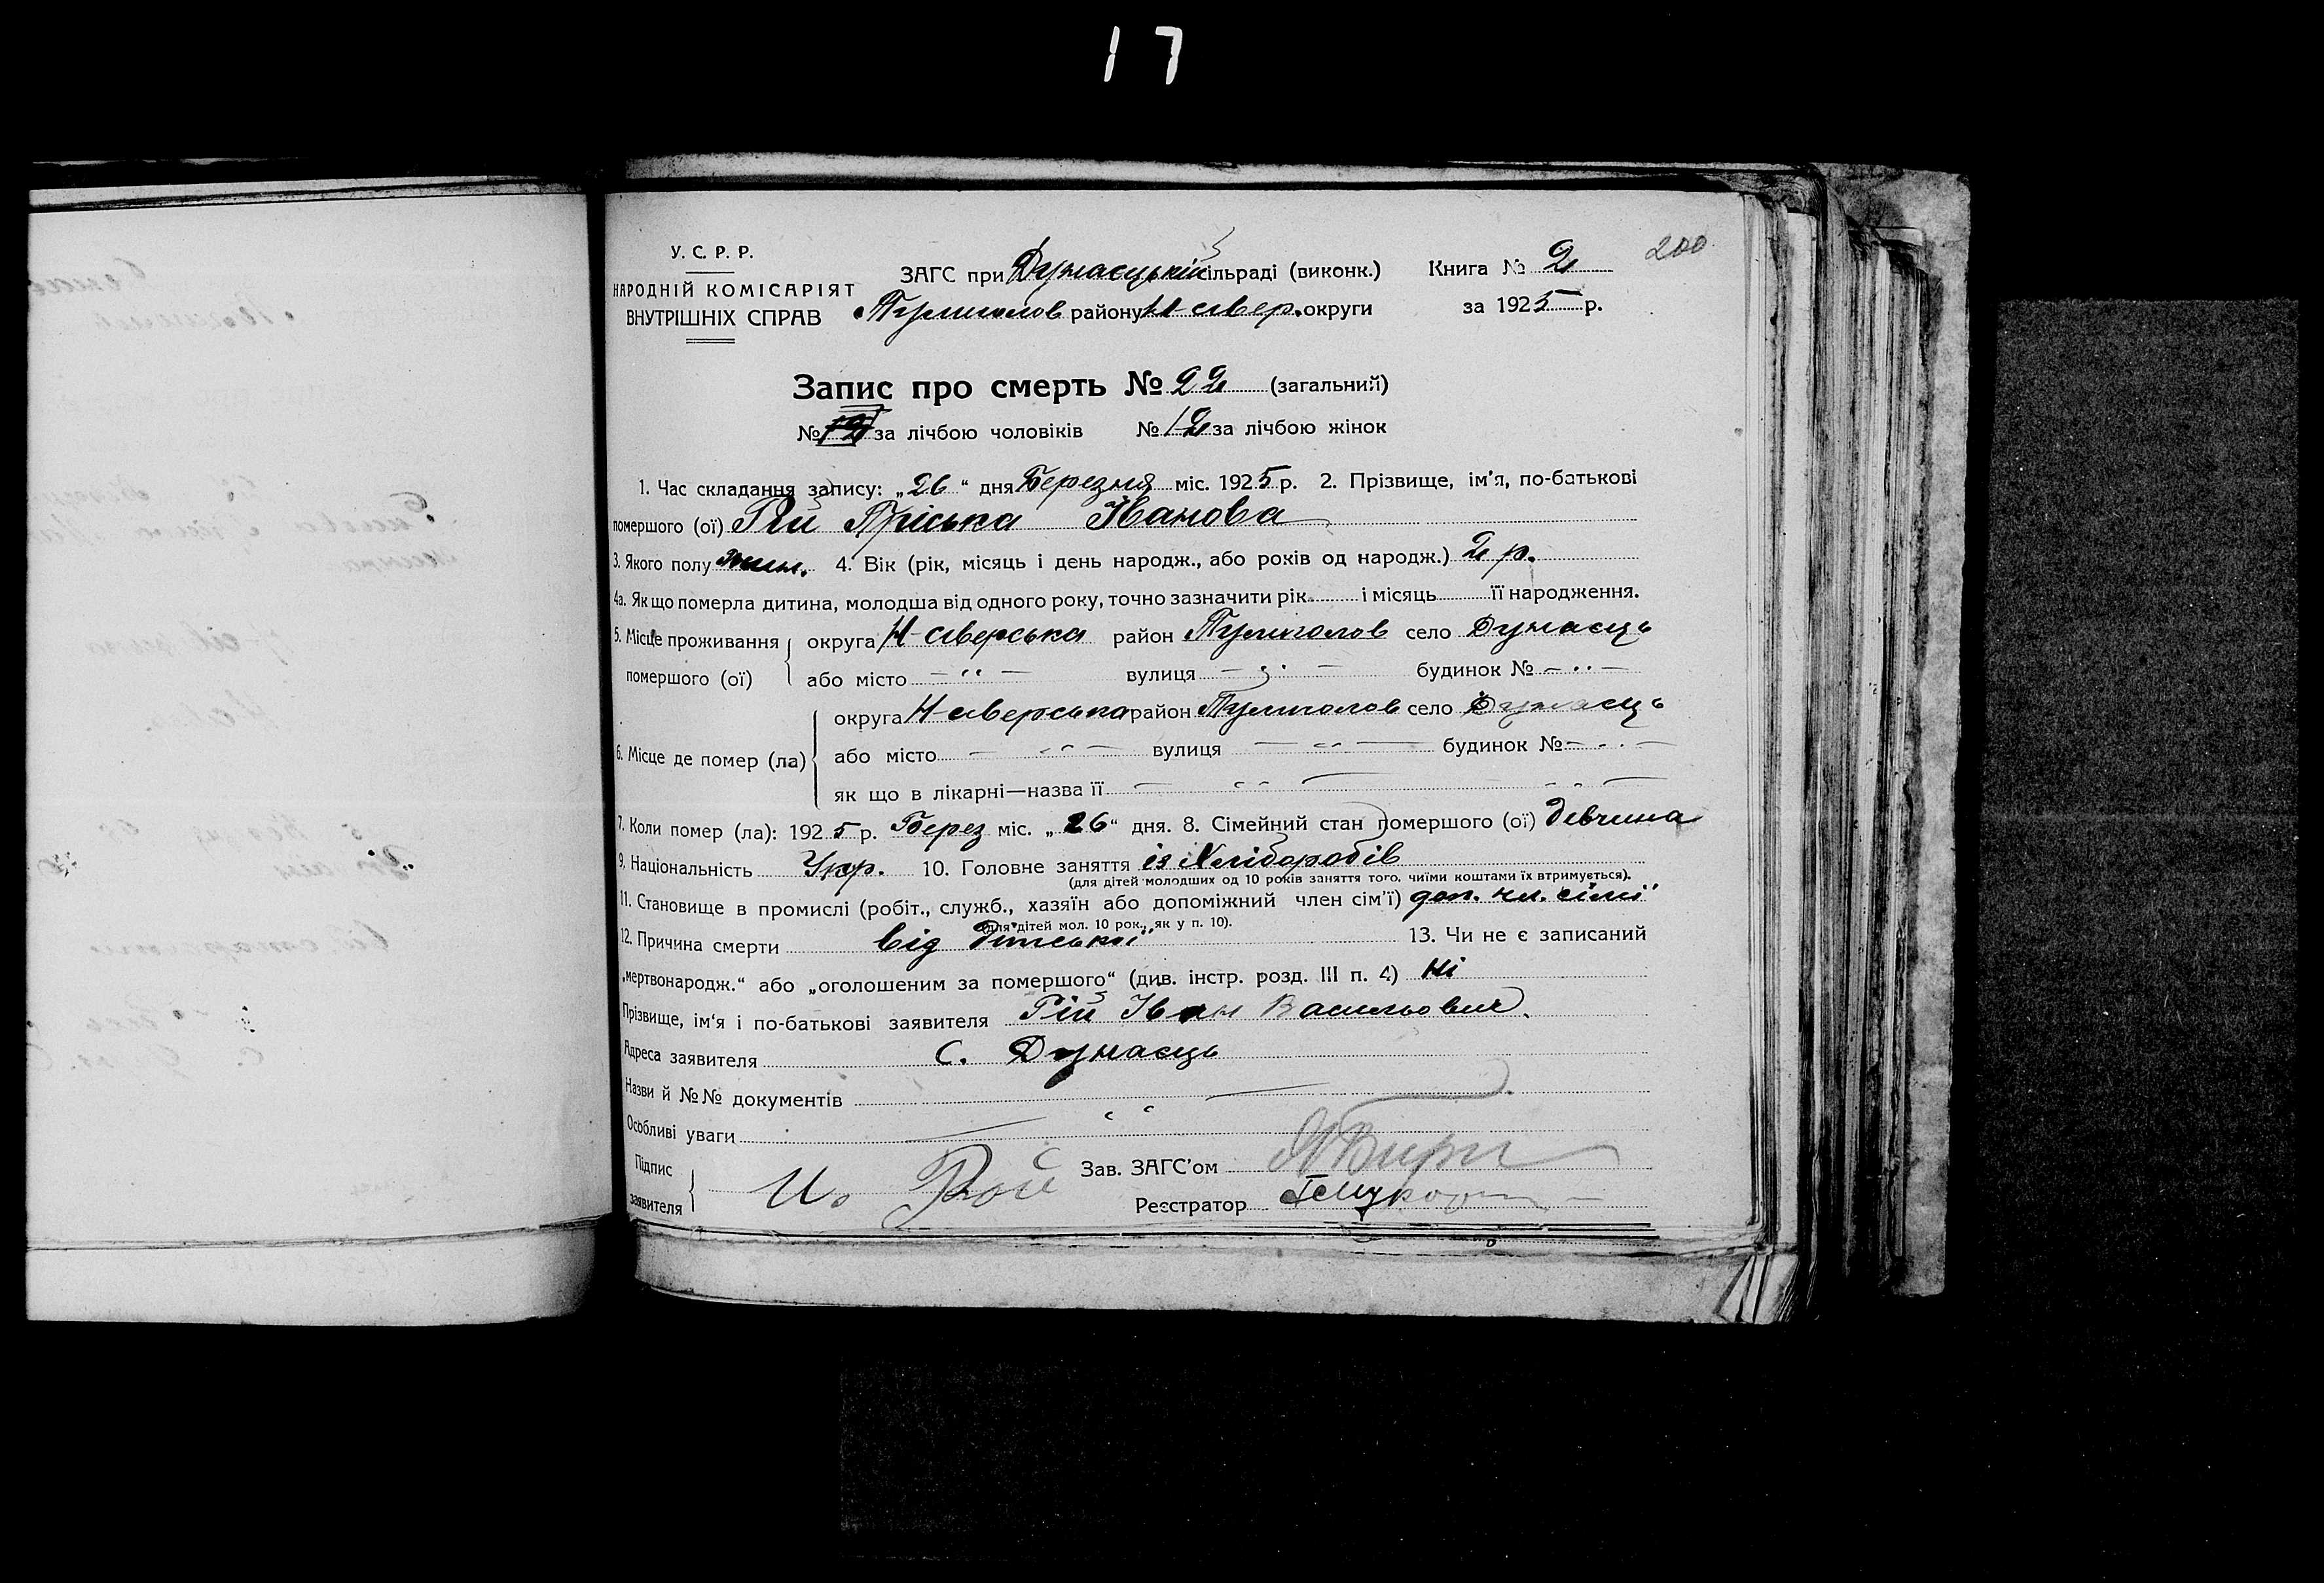 17
200
У. С. Р. Р.
НАРОДНІЙ КОМІСАРІЯТ
ВНУТРІШНІХ СПРАВ
ЗАГС при Дунаєцькій сільраді (виконк.)
Тулиголов району Н-сівер. округи
Книга № 2
за 1925 р.
Запис про смерть № 22 (загальний)
№ 12 за лічбою чоловіків № 12 за лічбою жінок
1. Час складання запису: „26“ дня Березня міс. 1925 р. 2. Прізвище, ім'я, по-батькові
помершого (ої) Рій Пріська Іванова
3. Якого полу жін. 4. Вік (рік, місяць і день народж., або років од народж.) 2 р.
4а. Як що померла дитина, молодша від одного року, точно зазначити рік і місяць її народження.
5. Місце проживання округа Н-сіверська район Тулиголов село Дунаєць
помершого (ої) або місто — " — вулиця — " — будинок № — " —
округа Н-сіверська район Тулиголов село Дунаєць
6. Місце де помер (ла) або місто — " — вулиця — " — будинок № — " —
як що в лікарні—назва її — " — " —
7. Коли помер (ла): 1925 р. Берез міс. „26“ дня. 8. Сімейний стан помершого (ої) дівчина
9. Національність Укр. 10. Головне заняття із Хліборобів
(для дітей молодших од 10 років заняття того, чиїми коштами їх втримується).
11. Становище в промислі (робіт., служб., хазяїн або допоміжний член сім'ї) доп. чл. сімї
(для дітей мол. 10 рок., як у п. 10).
12. Причина смерти від 13. Чи не є записаний
„мертвонародж.“ або „оголошеним за помершого“ (див. інстр. розд. III п. 4) Ні
Прізвище, ім'я і по-батькові заявителя Рій Іван Васильович.
Адреса заявителя С. Дунаєць
Назви й №№ документів
Особливі уваги
Підпис
заявителя И. Рой
Зав. ЗАГС'ом
Реєстратор